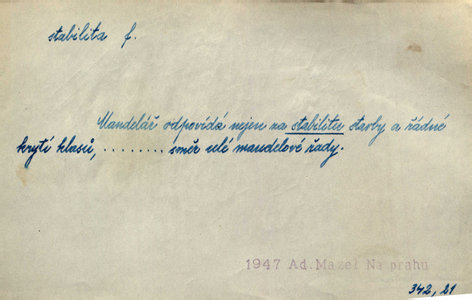 stabilita f.
Mandelář odpovídá nejen na stabilitu stavby a řádné
krytí klasů, ........ směr celé mandelové řady.
1947 Ad. Mazel Na prahu
342, 21